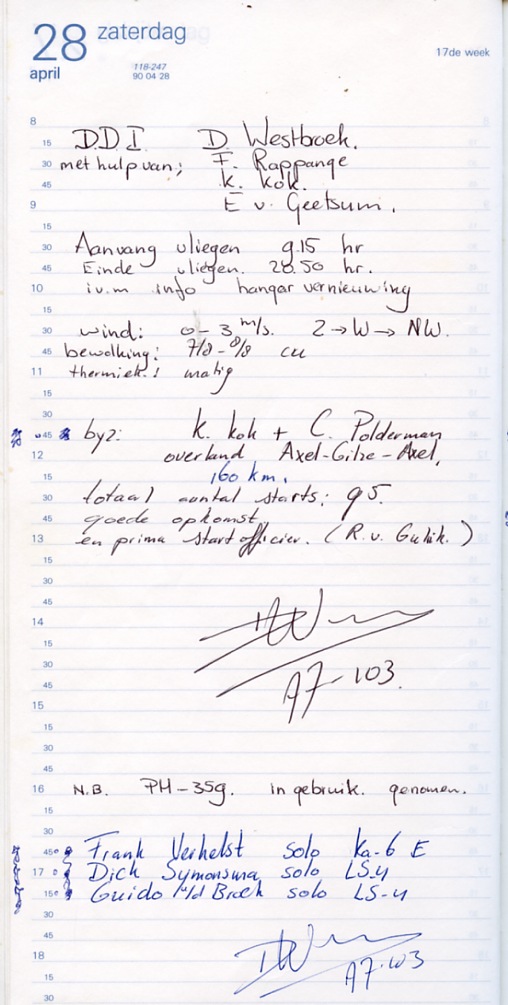 28 zaterdag
april
118-247
90 04 28
17de week
8
15 D.D.I. D. Westbroek.
30 met hulp van; F. Rappange
45 K. Kok.
9 E v. Geetsum.
15
30 Aanvang vliegen 9.15 hr
45 Einde vliegen. 20.50 hr.
10 i.v.m info hangar vernieuwing
15
30 wind: 0-3 m/s. Z→W→NW.
45 bewolking: 7/8-8/8 cu
11 thermiek: matig
15
30
45 byz: K. Kok + C. Polderman
12 overland Axel-Gilze-Axel,
15 160 km.
30 totaal aantal starts: 95.
45 goede opkomst
13 en prima startofficier. (R. v. Gulik.)
15
30
45
14
15
30
45 A7-103.
15
15
30
45
16 N.B. PH-359. in gebruik. genomen.
15
30
45 Frank Verhelst solo Ka-6 E
17 Dick Symonsma solo LS-4
15 Guido v/d Broek solo LS-4
30
45
18 A7-103
15
30